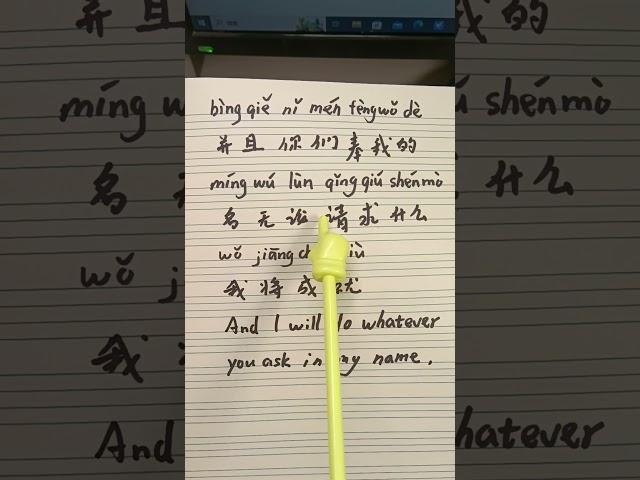 bìng qiě nǐ mén fèng wǒ dè
并且 你们奉我的
míng wú lùn qǐng qiú shénmò
名无论请求什么
wǒ jiāng ch iù
我将成就
And I will do whatever
you ask in my name.